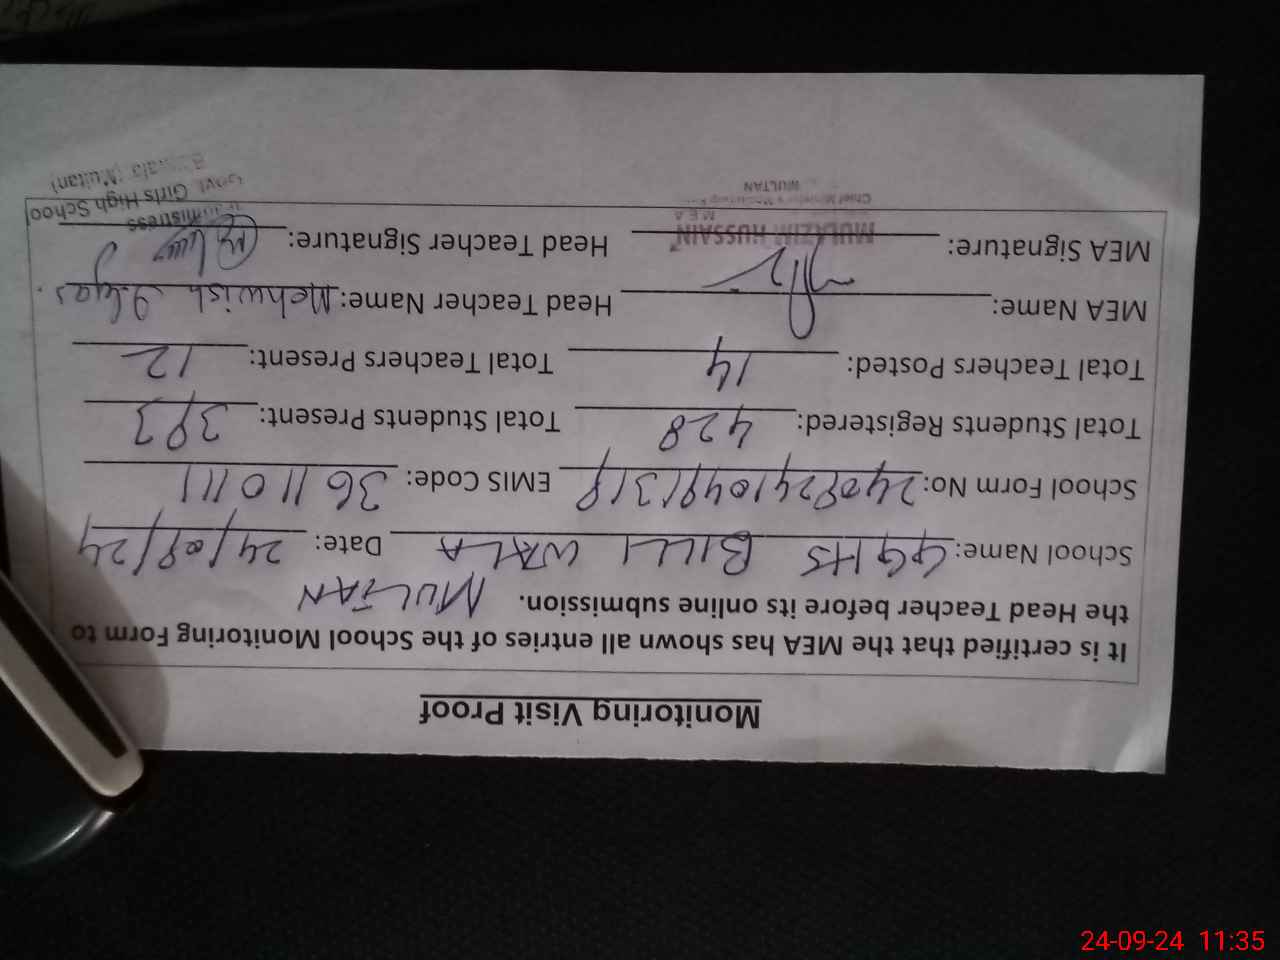 Monitoring Visit Proof
It is certified that the MEA has shown all entries of the School Monitoring Form to
the Head Teacher before its online submission. MULTAN
School Name: GGHS BILLI WALA Date: 24/09/24
School Form No: EMIS Code: 36110111
Total Students Registered: 428 Total Students Present: 393
Total Teachers Posted: 14 Total Teachers Present: 12
MEA Name: Head Teacher Name: Mehwish Ilyas.
MEA Signature: Head Teacher Signature:
MULAZIM HUSSAIN
M.E.A
Chief Minister's Monitoring
MULTAN
Girls High School
(Multan)
24-09-24 11:35